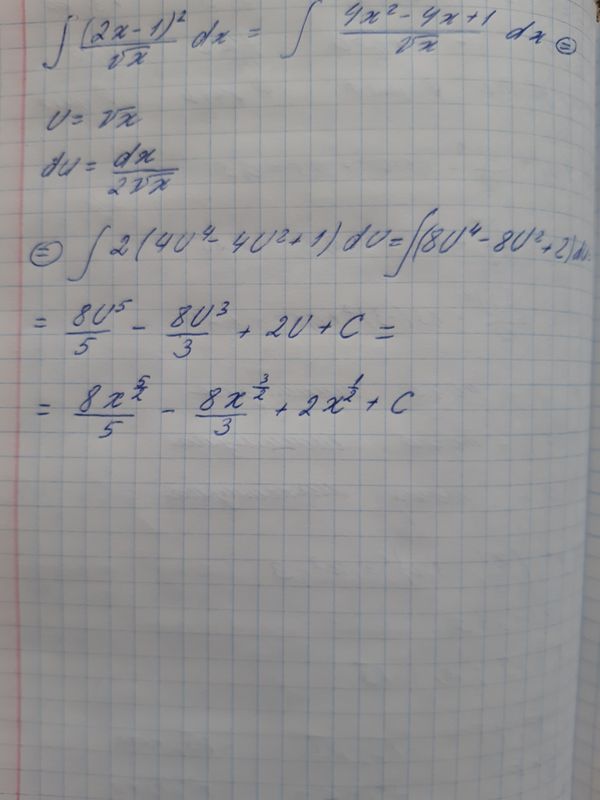 ∫ (2x-1)²/√x dx = ∫ (4x² - 4x + 1)/√x dx ⊜
U = √x
dU = dx/(2√x)
⊜ ∫ 2(4U⁴ - 4U² + 1) dU = ∫(8U⁴ - 8U² + 2) dU
= 8U⁵/5 - 8U³/3 + 2U + C =
= 8x^(5/2)/5 - 8x^(3/2)/3 + 2x^(1/2) + C